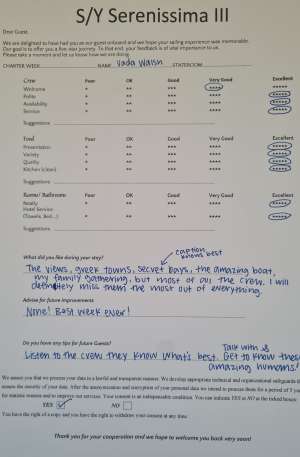 S/Y Serenissima III
Dear Guest,
We are delighted to have had you as our guest onboard and we hope your sailing experience was memorable.
Our goal is to offer you a five star journey. To that end, your feedback is of vital importance to us.
Please take a moment and let us know how we are doing.
CHARTER WEEK NAME Vada Walsh STATEROOM
Crew Poor OK Good Very Good Excellent
Welcome * ** *** **** *****
Polite * ** *** **** *****
Availability * ** *** **** *****
Service * ** *** **** *****
Suggestions
Food Poor OK Good Very Good Excellent
Presentation * ** *** **** *****
Variety * ** *** **** *****
Quality * ** *** **** *****
Kitchen (clean) * ** *** **** *****
Suggestions
Rooms / Bathrooms Poor OK Good Very Good Excellent
Ready * ** *** **** *****
Hotel Service
(Towels, Bed...) * ** *** **** *****
Suggestions
What did you like during your stay?
caption
knows best
The views, greek towns, secret bays, the amazing boat,
my family gathering, but most of all the crew. I will
definitely miss them the most out of everything.
Advise for future improvements
None! Best week ever!
Do you have any tips for future Guests?
Talk with us
Listen to the crew they know what's best. Get to know these
amazing humans!
We assure you that we process your data in a lawful and transparent manner. We develop appropriate technical and organisational safeguards
ensure the security of your data. After the anonymization and encryption of your personal data we intend to process them for a period of 5
for statistic reasons and to improve our services. Your consent is an indispensable condition. You can indicate YES or NO at the ticked boxes
YES NO
You have the right of a copy and you have the right to withdraw your consent at any time.
Thank you for your cooperation and we hope to welcome you back very soon!